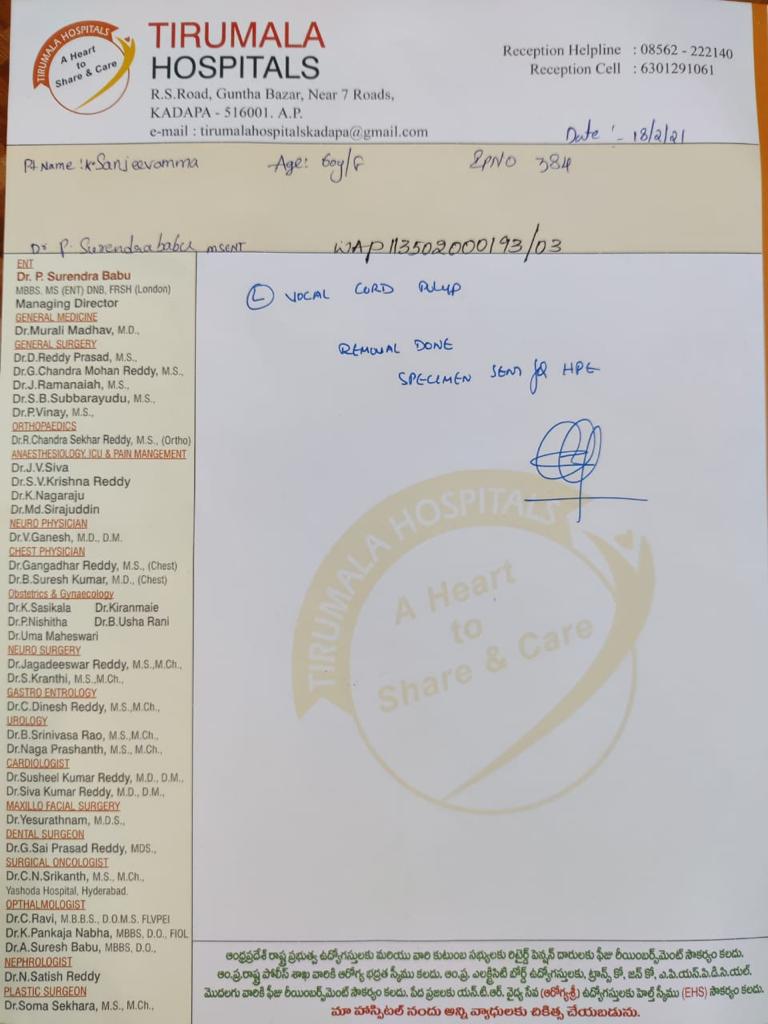 TIRUMALA HOSPITALS
A Heart
to
Share & Care
TIRUMALA
HOSPITALS
R.S.Road, Guntha Bazar, Near 7 Roads,
KADAPA - 516001. A.P.
e-mail : tirumalahospitalskadapa@gmail.com
Reception Helpline : 08562 - 222140
Reception Cell : 6301291061
Date :- 18/2/21
Pt Name : K Sanjeevamma Age: 60y/F IPNO 384
Dr P. Surendra babu MSENT WAP113502000193/03
ENT
Dr. P. Surendra Babu
MBBS, MS (ENT) DNB, FRSH (London)
Managing Director
GENERAL MEDICINE
Dr.Murali Madhav, M.D.,
GENERAL SURGERY
Dr.D.Reddy Prasad, M.S.,
Dr.G.Chandra Mohan Reddy, M.S.,
Dr.J.Ramanaiah, M.S.,
Dr.S.B.Subbarayudu, M.S.,
Dr.P.Vinay, M.S.,
ORTHOPAEDICS
Dr.R.Chandra Sekhar Reddy, M.S., (Ortho)
ANAESTHESIOLOGY, ICU & PAIN MANGEMENT
Dr.J.V.Siva
Dr.S.V.Krishna Reddy
Dr.K.Nagaraju
Dr.Md.Sirajuddin
NEURO PHYSICIAN
Dr.V.Ganesh, M.D., D.M.
CHEST PHYSICIAN
Dr.Gangadhar Reddy, M.S., (Chest)
Dr.B.Suresh Kumar, M.D., (Chest)
Obstetrics & Gynaecology
Dr.K.Sasikala Dr.Kiranmaie
Dr.P.Nishitha Dr.B.Usha Rani
Dr.Uma Maheswari
NEURO SURGERY
Dr.Jagadeeswar Reddy, M.S.,M.Ch.,
Dr.S.Kranthi, M.S.,M.Ch.,
GASTRO ENTROLOGY
Dr.C.Dinesh Reddy, M.S.,M.Ch.,
UROLOGY
Dr.B.Srinivasa Rao, M.S.,M.Ch.,
Dr.Naga Prashanth, M.S., M.Ch.,
CARDIOLOGIST
Dr.Susheel Kumar Reddy, M.D., D.M.,
Dr.Siva Kumar Reddy, M.D., D.M.,
MAXILLO FACIAL SURGERY
Dr.Yesurathnam, M.D.S.,
DENTAL SURGEON
Dr.G.Sai Prasad Reddy, MDS.,
SURGICAL ONCOLOGIST
Dr.C.N.Srikanth, M.S., M.Ch.,
Yashoda Hospital, Hyderabad.
OPTHALMOLOGIST
Dr.C.Ravi, M.B.B.S., D.O.M.S. FLVPEI
Dr.K.Pankaja Nabha, MBBS, D.O., FIOL
Dr.A.Suresh Babu, MBBS, D.O.,
NEPHROLOGIST
Dr.N.Satish Reddy
PLASTIC SURGEON
Dr.Soma Sekhara, M.S., M.Ch.,
(L) VOCAL CORD POLYP
REMOVAL DONE
SPECIMEN SENT for HPE
TIRUMALA HOSPITALS
A Heart
to
Share & Care
ఆంధ్రప్రదేశ్ రాష్ట్ర ప్రభుత్వ ఉద్యోగస్తులకు మరియు వారి కుటుంబ సభ్యులకు రిటైర్డ్ పెన్షన్ దారులకు ఫీజు రీయింబర్స్‌మెంట్ సౌకర్యం కలదు.
ఆం.ప్ర.రాష్ట్ర పోలీస్ శాఖ వారికి ఆరోగ్య భద్రత స్కీము కలదు. ఆం.ప్ర. ఎలక్ట్రిసిటీ బోర్డ్ ఉద్యోగస్తులకు, ట్రాన్స్ కో, జన్ కో, ఎ.పి.యస్.పి.డి.సి.యల్.
మొదలగు వారికి ఫీజు రీయింబర్స్‌మెంట్ సౌకర్యం కలదు. పేద ప్రజలకు యన్.టి.ఆర్. వైద్య సేవ (ఆరోగ్యశ్రీ) ఉద్యోగస్తులకు హెల్త్ స్కీము (EHS) సౌకర్యం కలదు.
మా హాస్పిటల్ నందు అన్ని వ్యాధులకు చికిత్స చేయబడును.